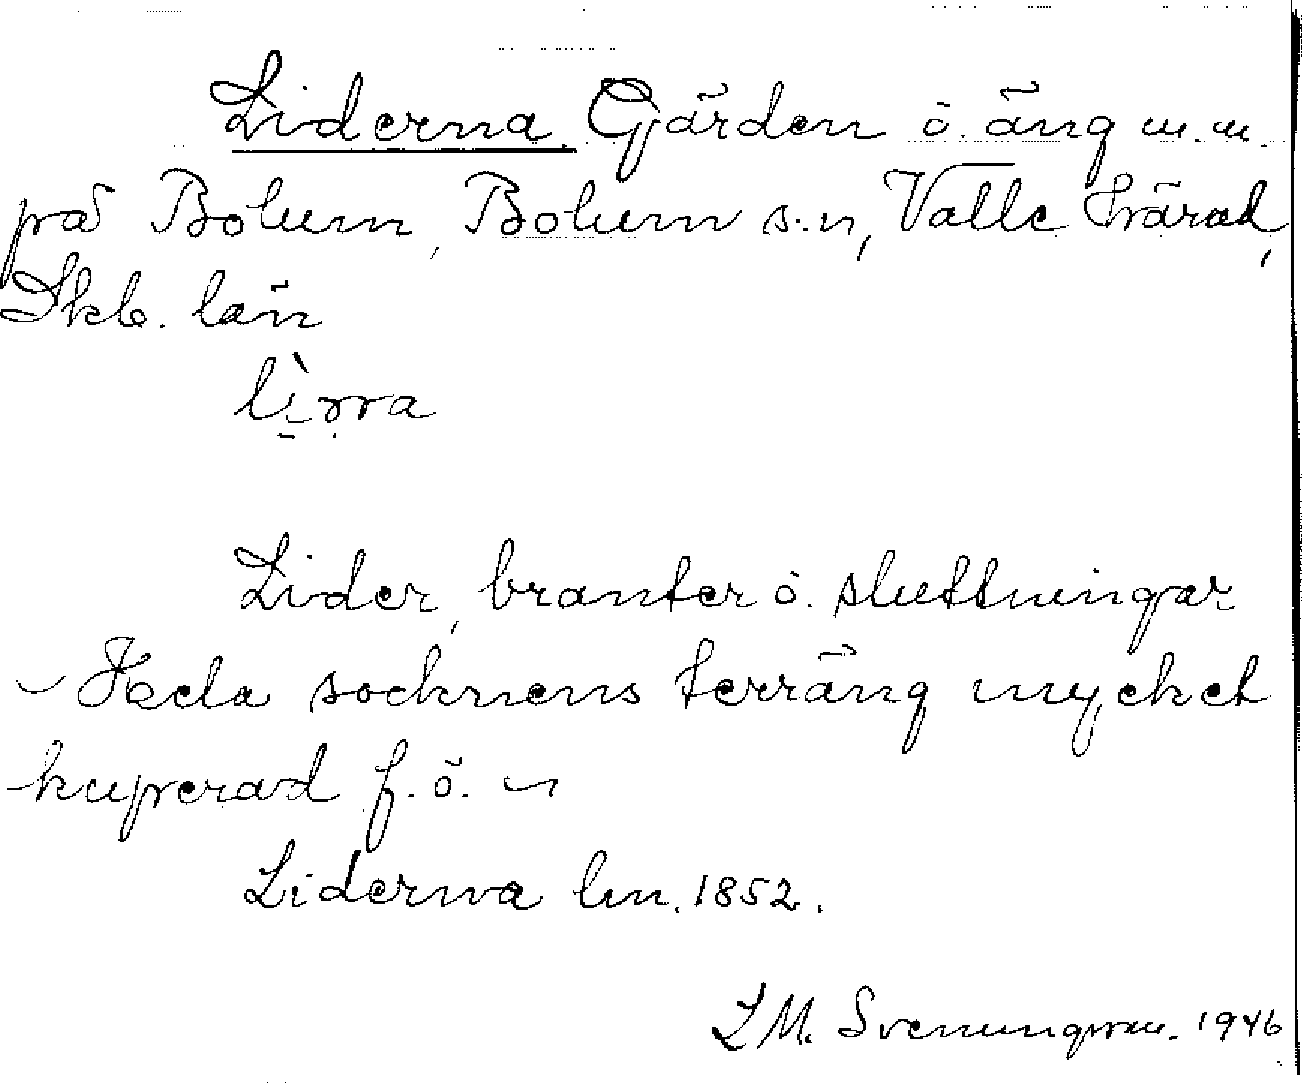 Liderna. Gjärden ö. äng m.m.
på Bolum, Bolum s:n, Valle härad,
Skb. län
lìrra
Lider, branter ö. sluttningar
– Hela socknens terräng mycket
kuperad f. ö. –
Liderna lm. 1852.
L M. Svenungsson. 1946